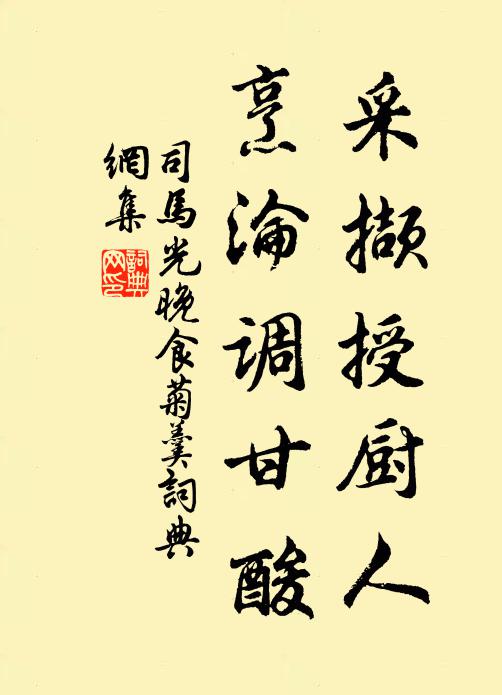 采擷授厨人
烹淪調甘酸
司馬光晚食菊羹詞典
網集
詞典
网印